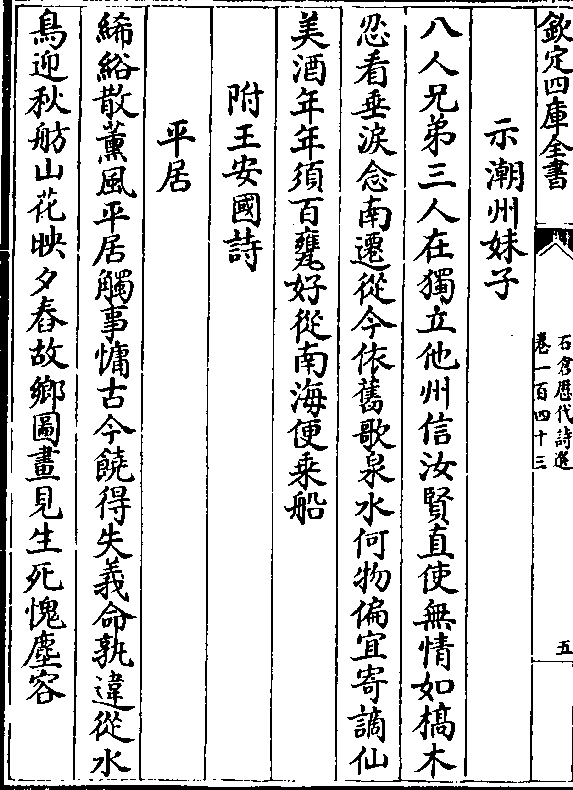 欽定四庫全書
石倉歷代詩選
卷一百四十三
五
示潮州妹子
八人兄弟三人在獨立他州信汝賢直使無情如槁木
忍看垂淚念南遷從今依舊歌泉水何物偏宜寄謫仙
美酒年年須百甕好從南海便乗船
附王安國詩
平居
絺綌散薫風平居觸事慵古今饒得失義命孰違從水
鳥迎秋舫山花映夕舂故鄉圖畫見生死愧塵容